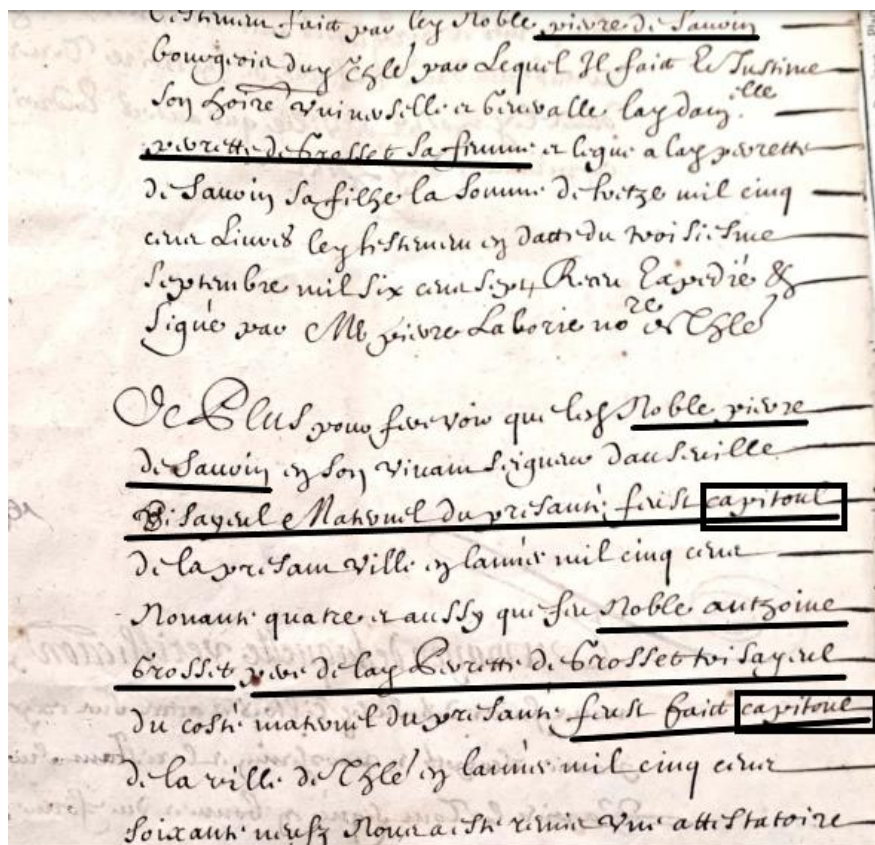 testement faict par led noble pierre de sauoin
bourgeois dud thle par lequel Il faict & Institue
son hoire vniuerselle et generalle lad dam.elle
perrette de Grosset sa femme et legue a lad perrette
de sauoin sa filhe la somme de tretze mil cinq
cens Liures led testement en datte du troisiesme
septembre mil six cens sept, Receu Expedie &
signé par Me pierre Laborie nore de Thle
De Plus pour fere voir que led Noble pierre
de sauoin en son viuant seigneur dauseuille
Bisayeul Maternel du presante feust capitoul
de la presant ville en lannee mil cinq cens
Nonante quatre et aussy que feu Noble anthoine
Grosset pere de lad Perrette de Grosset trisayeul
du costé maternel du presante feust faict capitoul
de la ville de Thle en lannee mil cinq cens
soixante neuf Nous a esté remis vne attestatoire